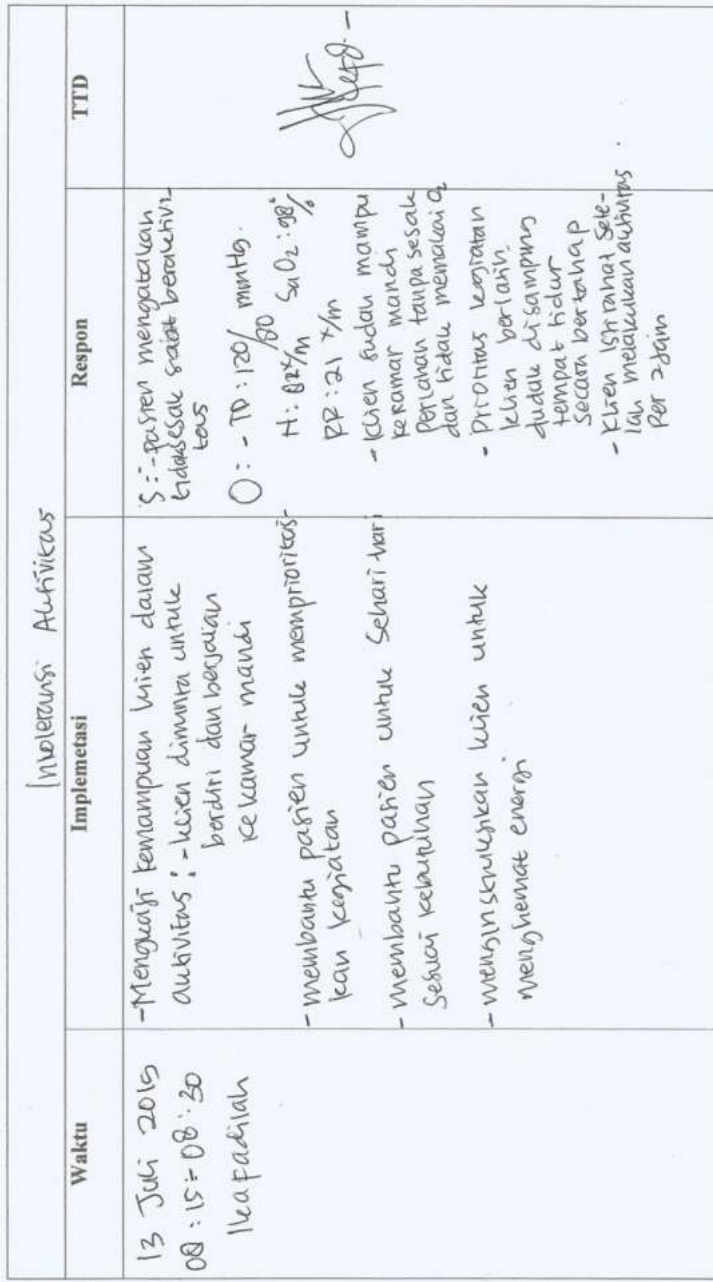 Intoleransi Aktivitas
Waktu
Implemetasi
Respon
TTD
13 Juli 2015
08 : 15 - 08 : 30
Ika Fadilah
- Mengkaji kemampuan klien dalam
aktivitas : - klien diminta untuk
berdiri dan berjalan
ke kamar mandi
- membantu pasien untuk memprioritas-
kan kegiatan
- membantu pasien untuk sehari hari
sesuai kebutuhan
- menginstruksikan klien untuk
menghemat energi
S : - pasien mengatakan
tidak sesak saat beraktivi-
tas
O : - TD : 120/80 mmHg.
N : 82x/m SaO2 : 98%
RR : 21 x/m
- klien sudah mampu
kekamar mandi
perlahan tanpa sesak
dan tidak memakai O2
- Prioritas kegiatan
klien berlatih
duduk disamping
tempat tidur
secara bertahap
- klien istirahat sete-
lah melakukan aktivitas
per 2 jam